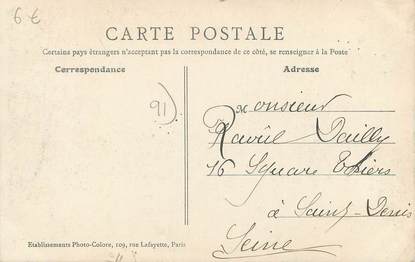 6 €
CARTE POSTALE
Certains pays étrangers n'acceptant pas la correspondance de ce côté, se renseigner à la Poste
Correspondance
Adresse
91)
Monsieur
Raoül Dailly
16 Square Thiers
à Saint-Denis
Seine
Etablissements Photo-Colore, 109, rue Lafayette, Paris